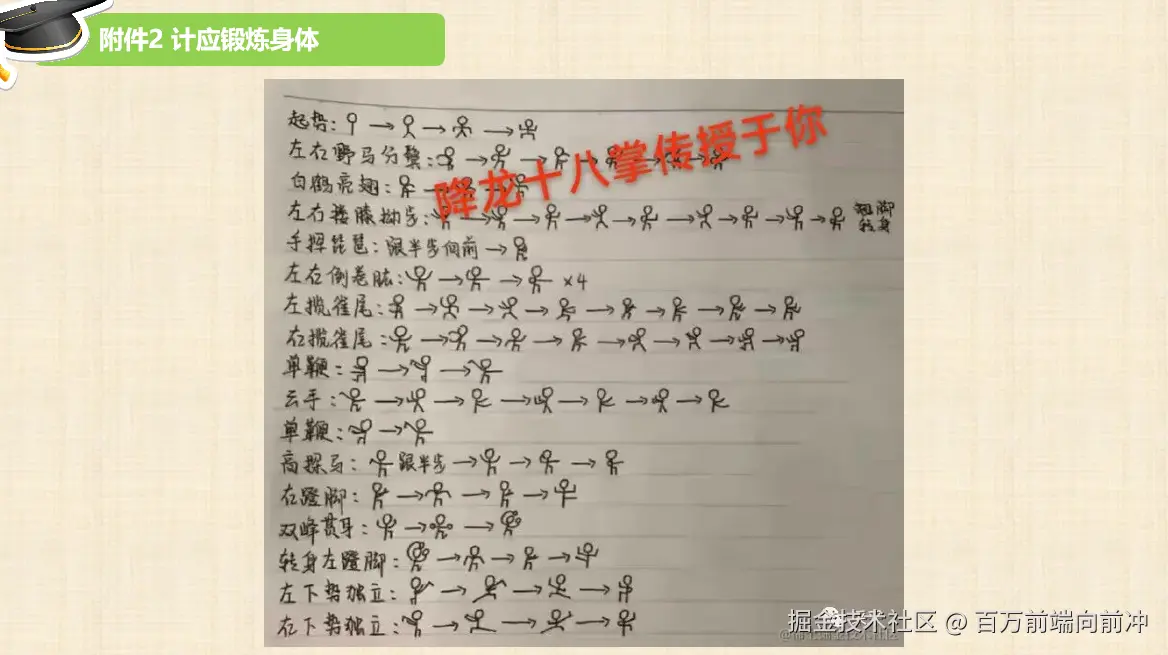 附件2 计应锻炼身体
降龙十八掌传授于你
起势:
左右野马分鬃:
白鹤亮翅:
左右搂膝拗步: 翘脚
转身
手挥琵琶:跟半步向前
左右倒卷肱: ×4
左揽雀尾:
右揽雀尾:
单鞭:
云手:
单鞭:
高探马: 跟半步
右蹬脚:
双峰贯耳:
转身左蹬脚:
左下势独立:
右下势独立:
掘金技术社区 @ 百万前端向前冲